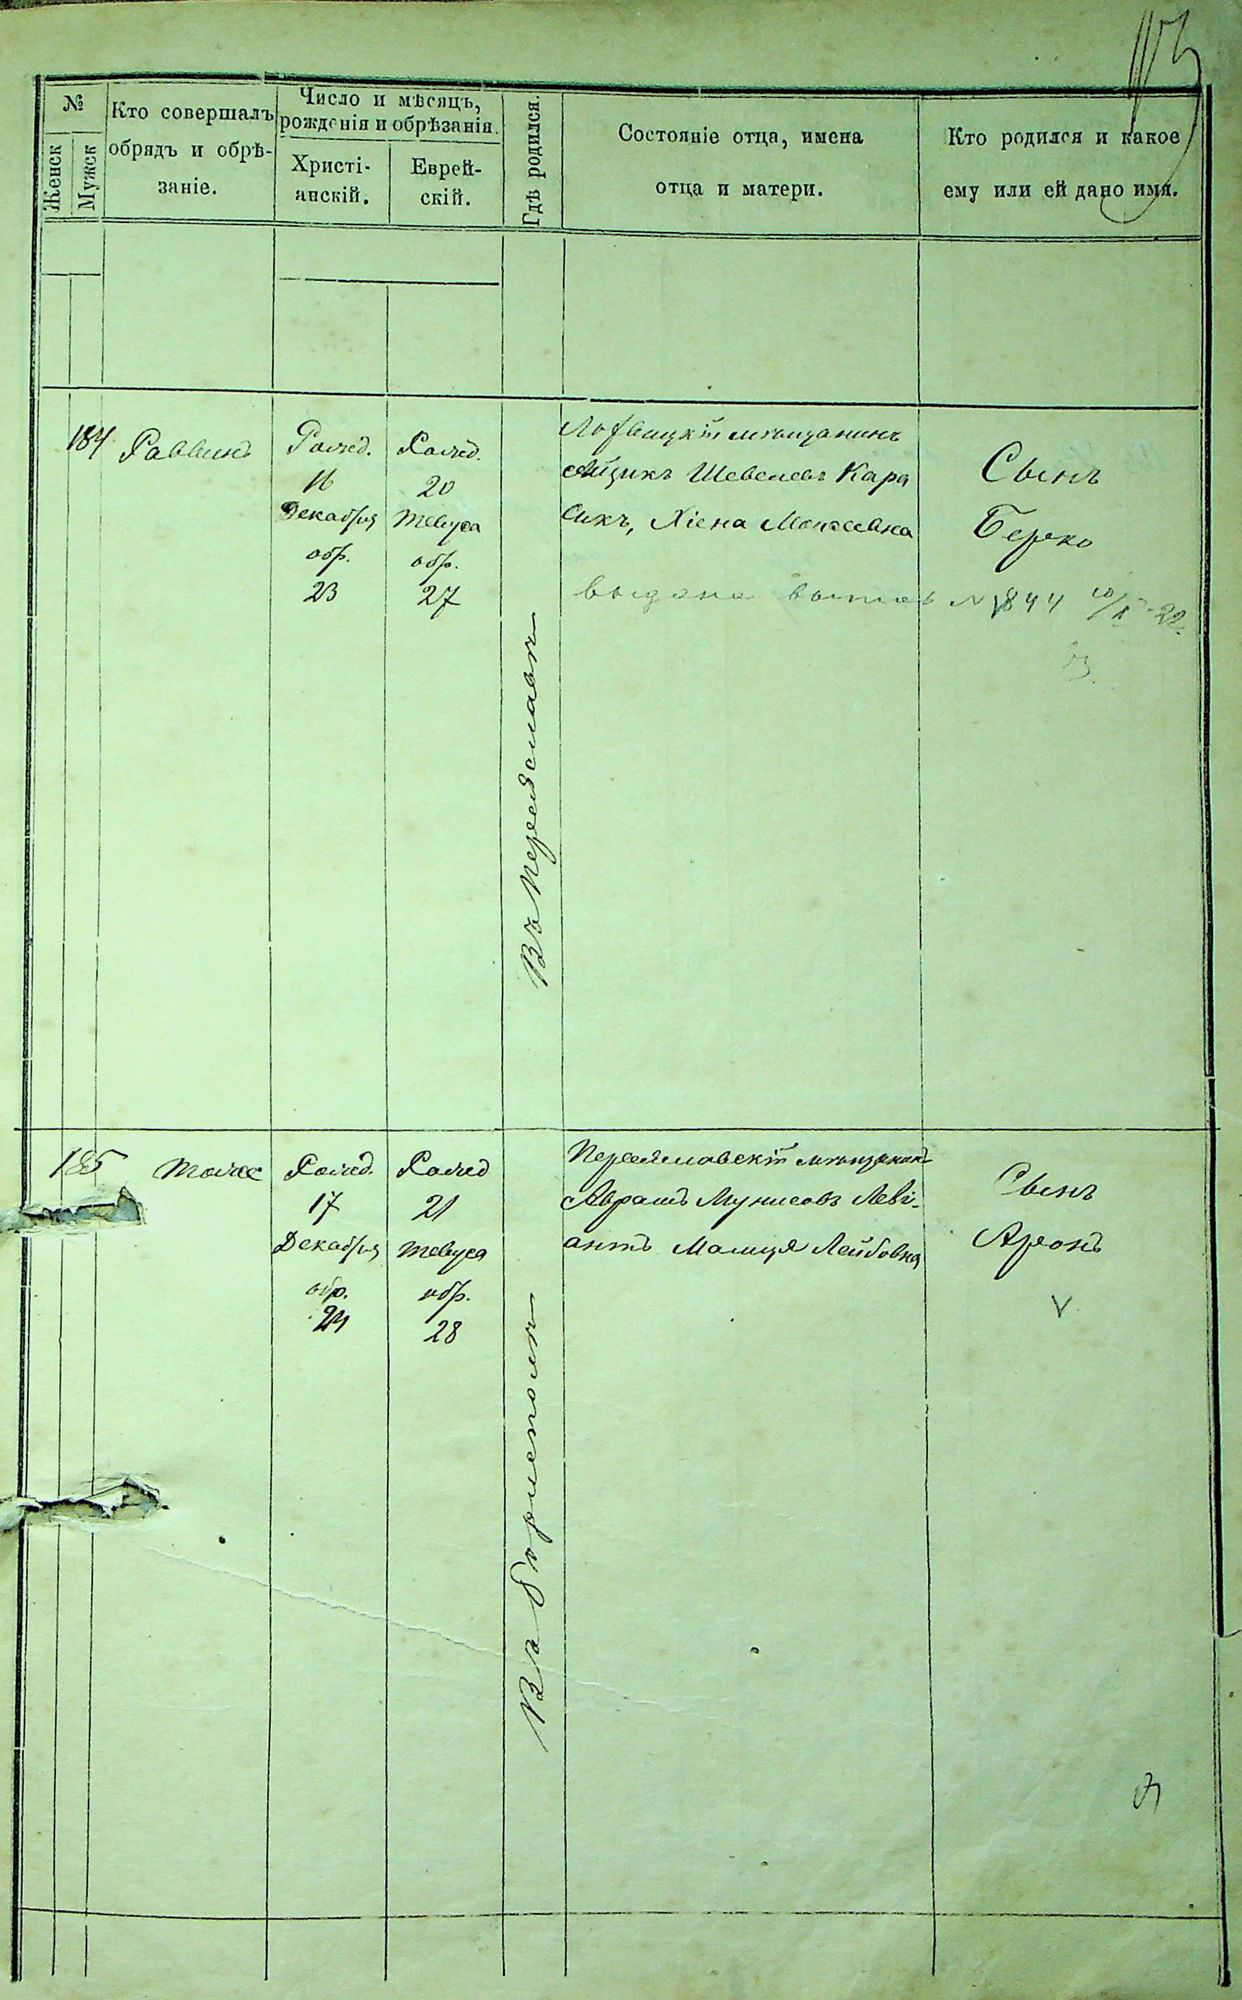 №
Женск
Мужск
Кто совершалъ
обрядъ и обрѣ-
заніе.
Число и мѣсяцъ,
рожденія и обрѣзанія.
Христі-
анскій.
Еврей-
скій.
Гдѣ родился.
Состояніе отца, имена
отца и матери.
Кто родился и какое
ему или ей дано имя.
184
Раввинъ
Рожд.
16
Декабря
обр.
23
Рожд.
20
Тевуса
обр.
27
Въ Переяславѣ
Лохвицкій мѣщанинъ
Айзикъ Шевелевъ Кара
сикъ, Хіена Моисеевна
Сынъ
Берко
выдана выпись № 1844 10/X 22.
185
Тоже
Рожд.
17
Декабря
обр.
24
Рожд
21
Тевуса
обр.
28
Въ Борисполѣ
Переяславскій мѣщанинъ
Аврамъ Мунисовъ Леві-
антъ Малия Лейбовна
Сынъ
Аронъ
V